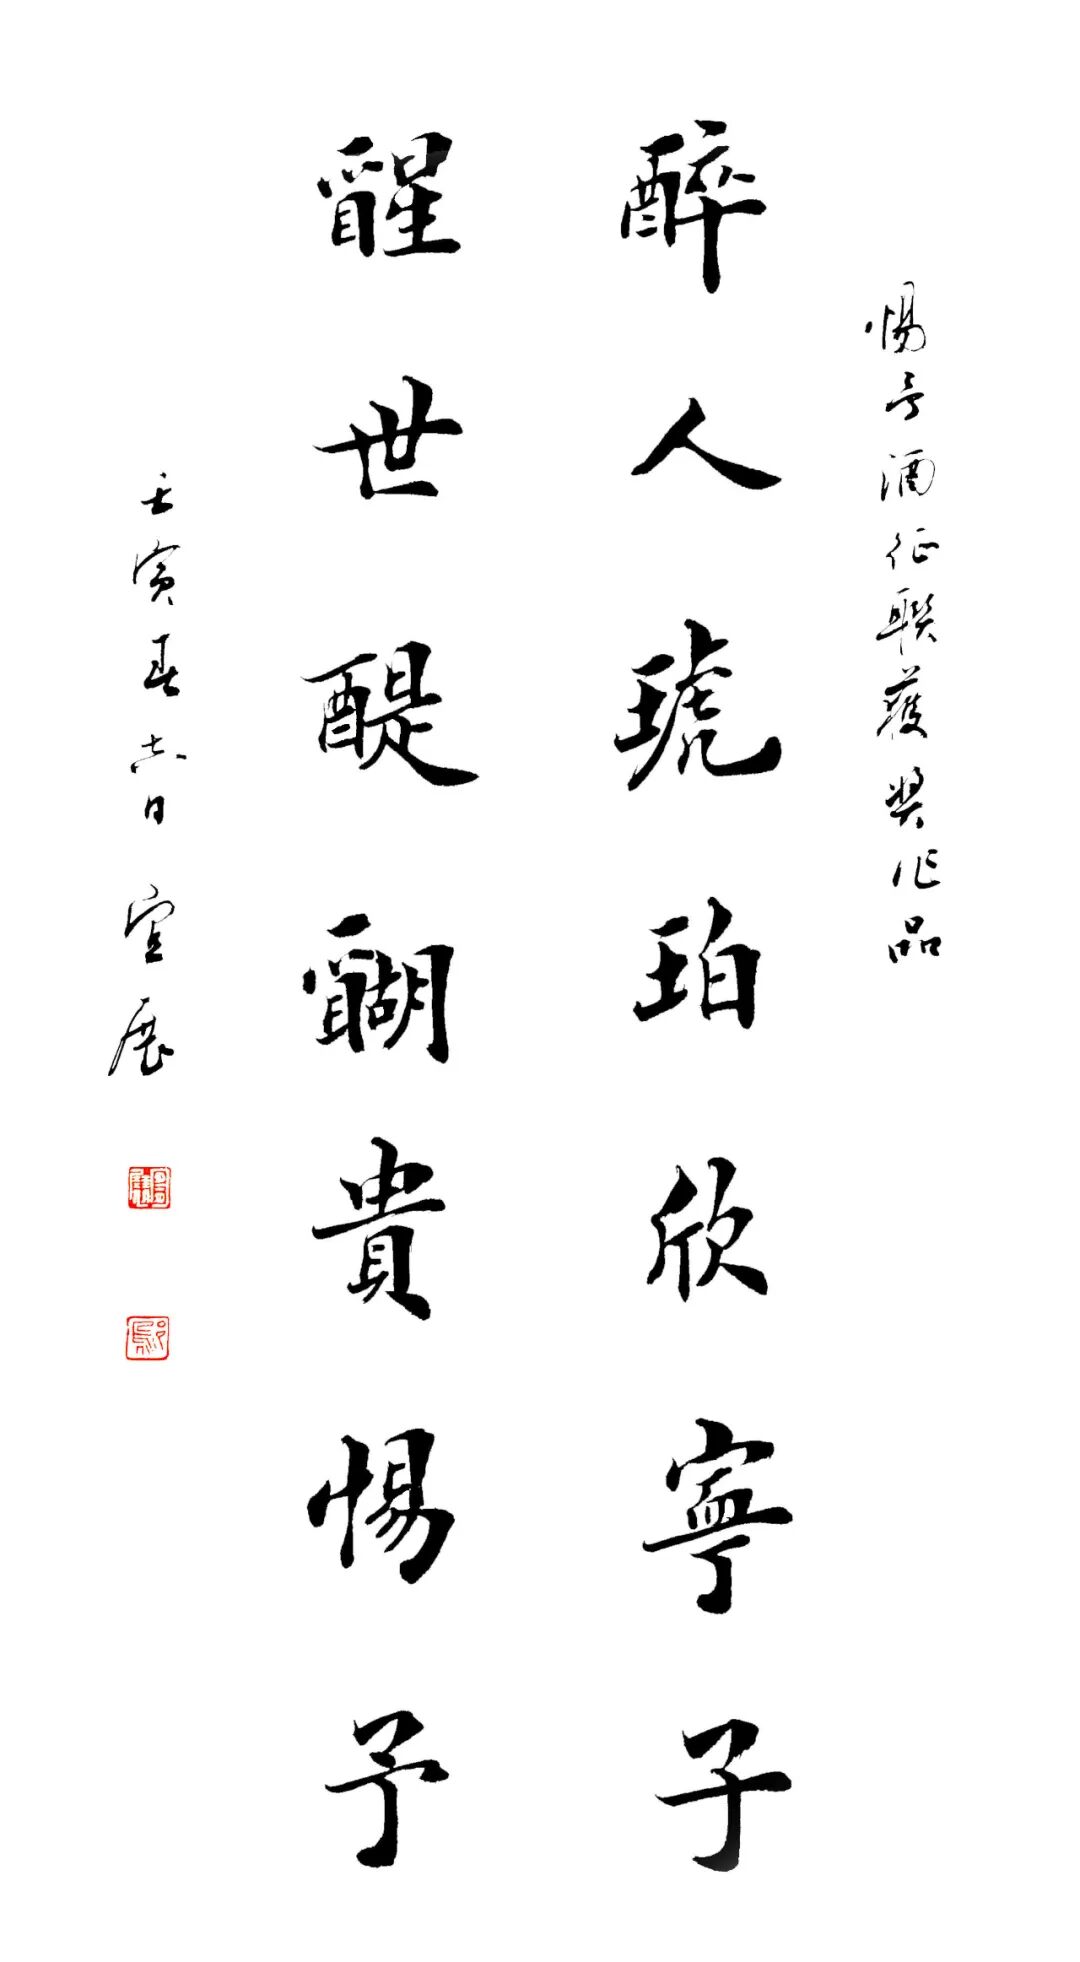 惕予酒征联获奖作品
醉人琥珀欣寧子
醒世醍醐貴惕予
壬寅春六日 宣展